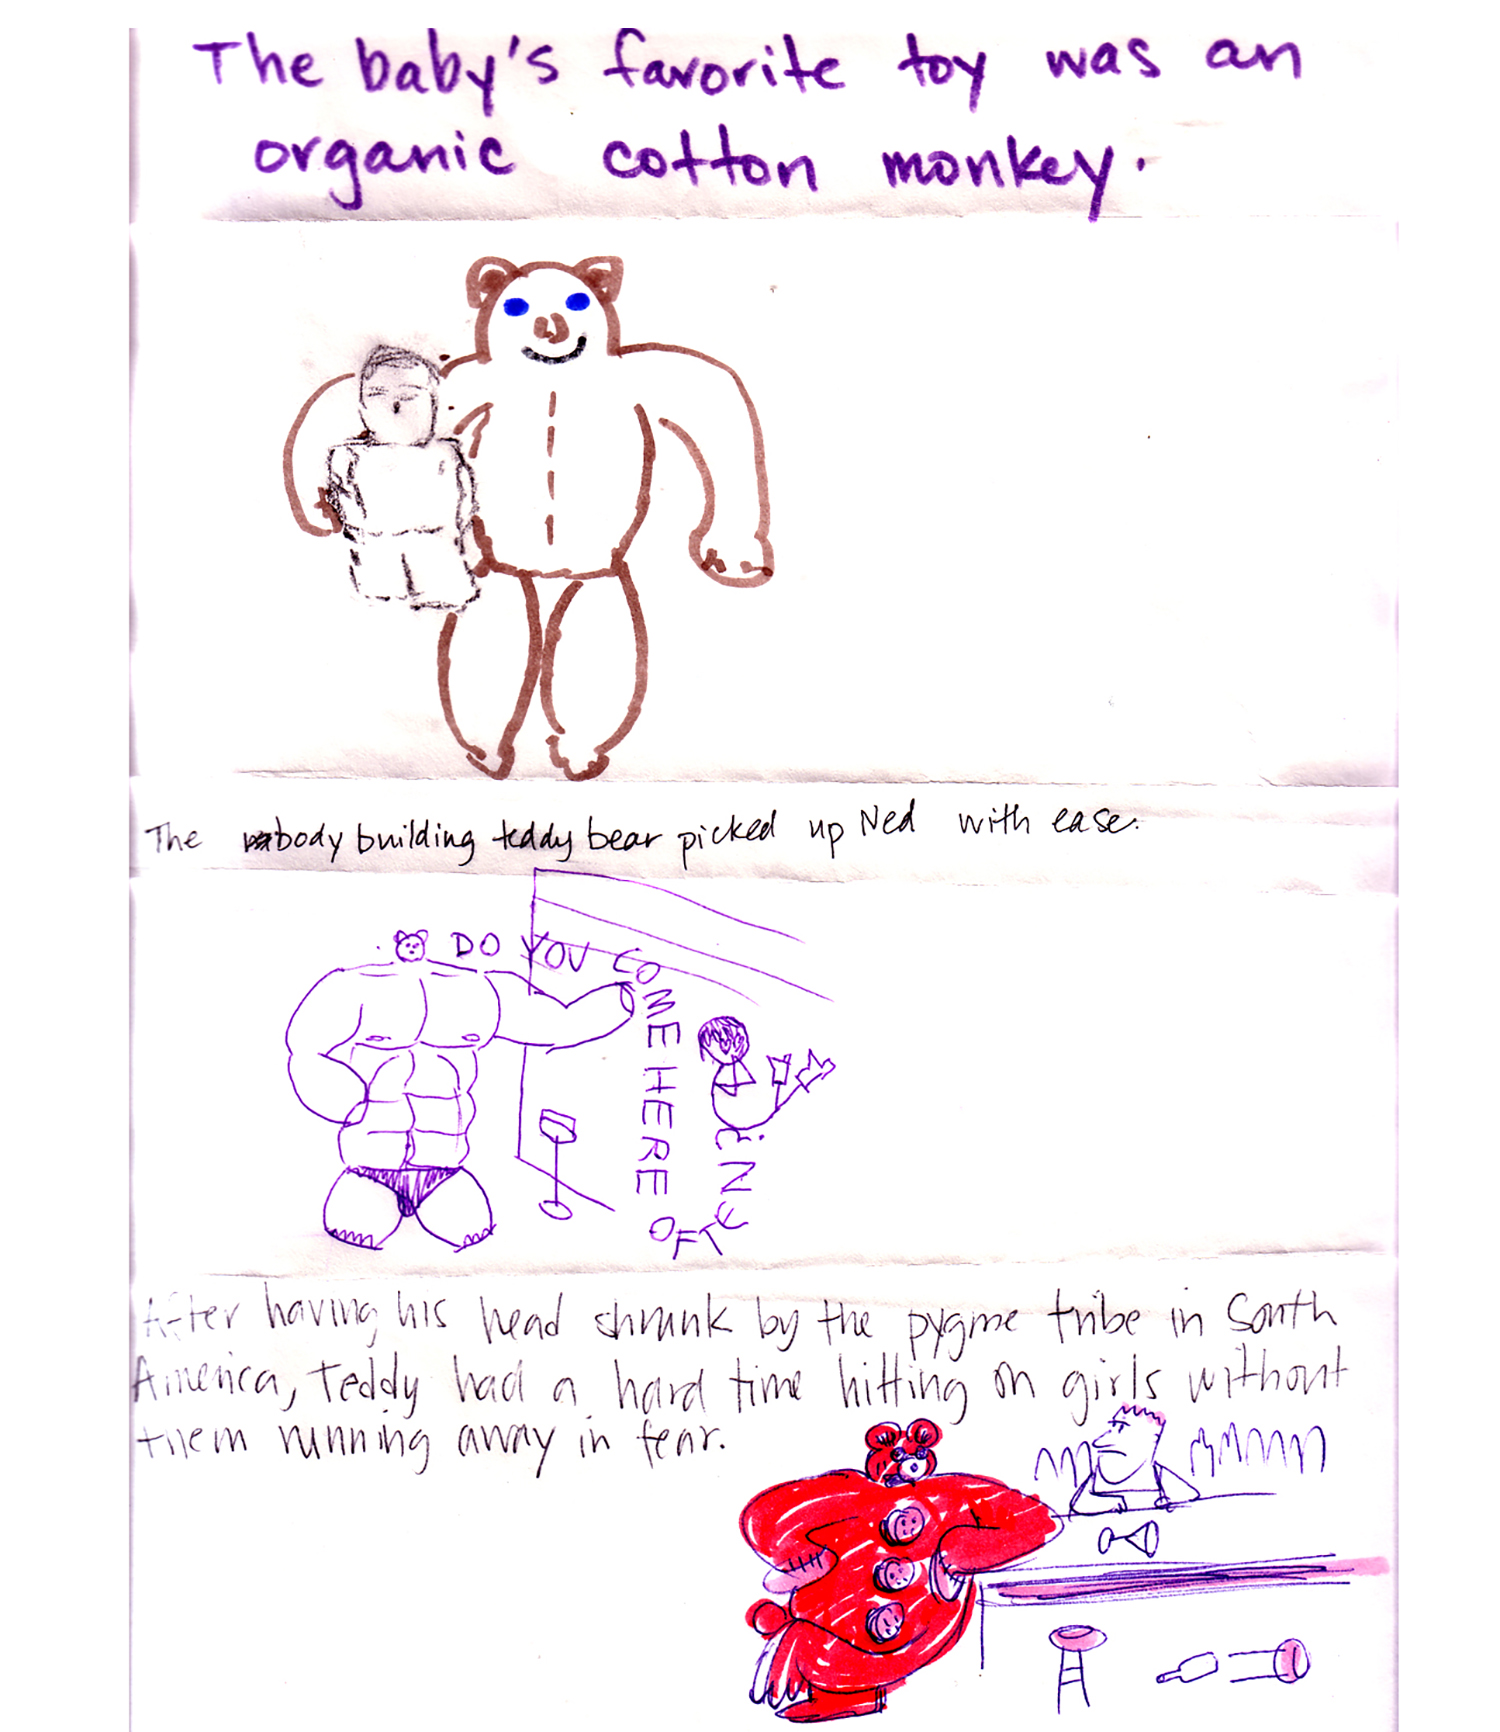 The baby's favorite toy was an
organic cotton monkey.
The body building teddy bear picked up Ned with ease.
DO YOU COME HERE OFTEN?
After having his head shrunk by the pygme tribe in South
America, Teddy had a hard time hitting on girls without
them running away in fear.